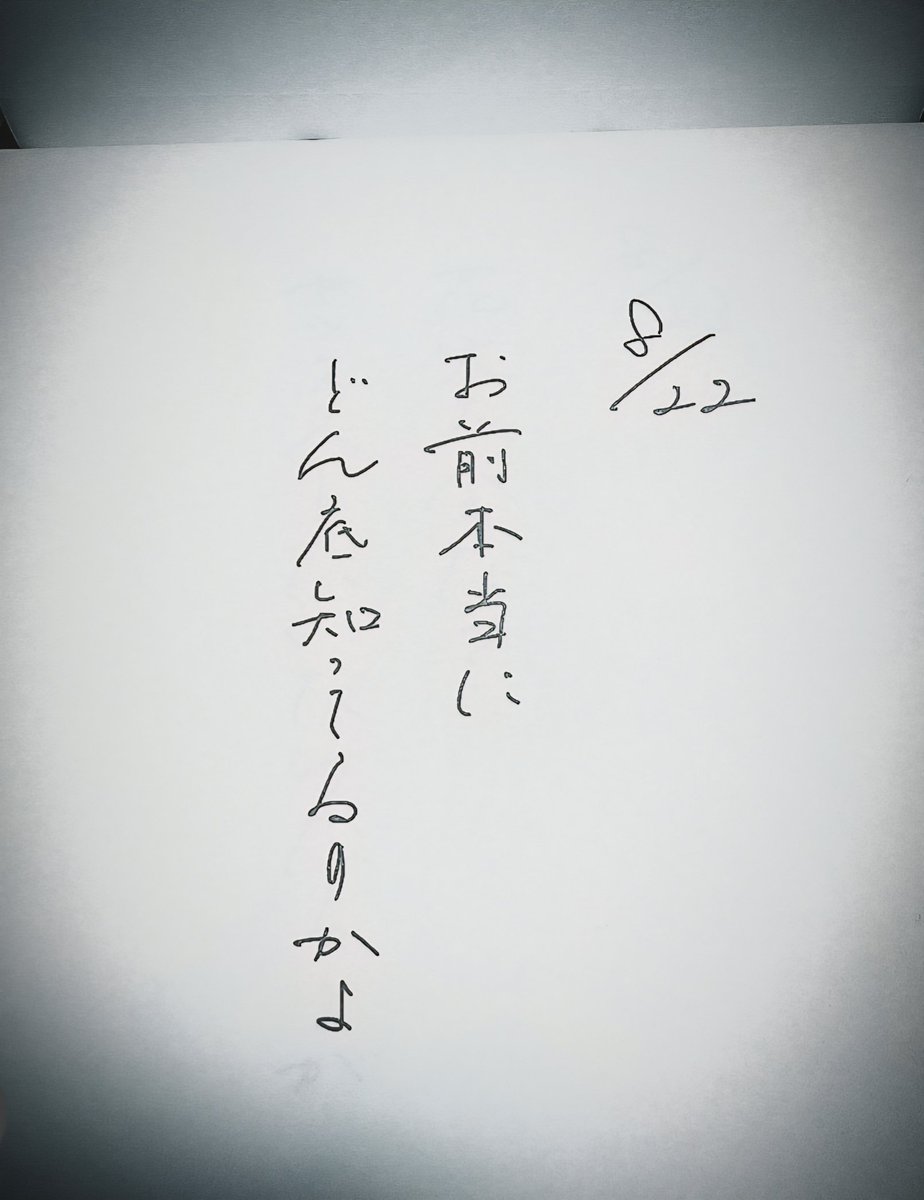 8/22
お前本当に
どん底知ってるのかよ